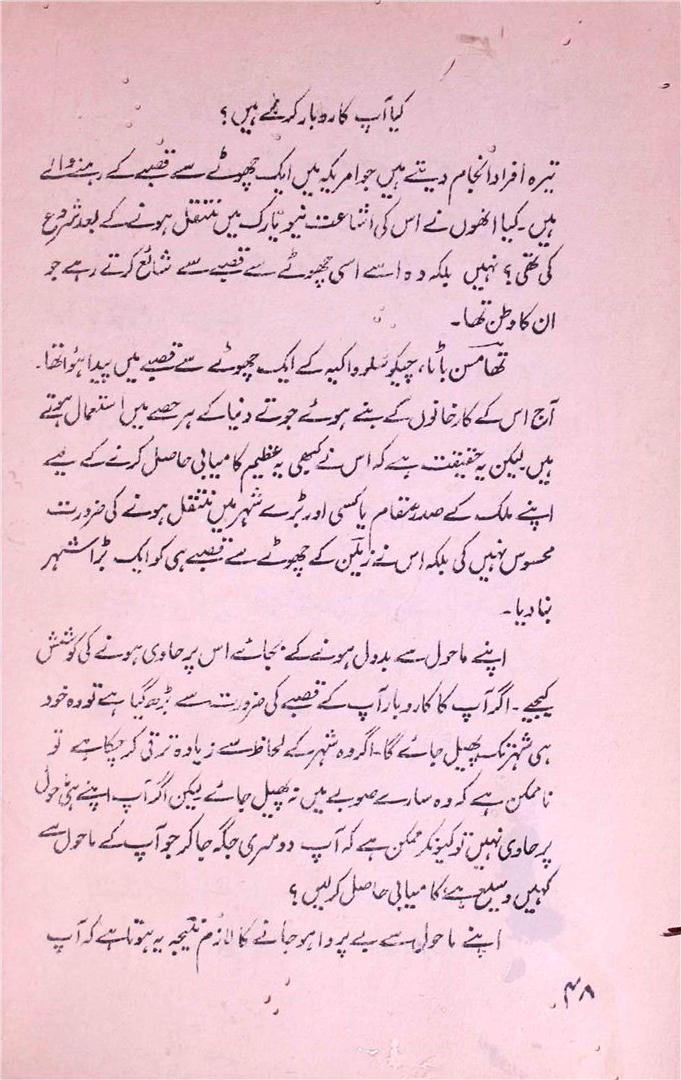 کیا آپ کاروبار کرتے ہیں؟
تیرہ افراد انجام دیتے ہیں جو امریکہ میں ایک چھوٹے سے قصبے کے رہنے والے
ہیں۔ کیا انھوں نے اس کی اشاعت نیویارک میں منتقل ہونے کے بعد شروع
کی تھی؟ نہیں بلکہ وہ اسے اسی چھوٹے سے قصبے سے شائع کرتے رہے جو
ان کا وطن تھا۔
تھامسن باٹا، چیکوسلوواکیہ کے ایک چھوٹے سے قصبے میں پیدا ہوا تھا۔
آج اس کے کارخانوں کے بنے ہوئے جوتے دنیا کے ہر حصے میں استعمال ہوتے
ہیں۔ لیکن یہ حقیقت ہے کہ اس نے کبھی یہ عظیم کامیابی حاصل کرنے کے لیے
اپنے ملک کے صدر مقام یا کسی اور بڑے شہر میں منتقل ہونے کی ضرورت
محسوس نہیں کی بلکہ اس نے زلین کے چھوٹے سے قصبے ہی کو ایک بڑا شہر
بنا دیا۔
اپنے ماحول سے بددل ہونے کے بجائے اس پر حاوی ہونے کی کوشش
کیجیے۔ اگر آپ کا کاروبار آپ کے قصبے کی ضرورت سے بڑھ گیا ہے تو وہ خود
ہی شہر تک پھیل جائے گا۔ اگر وہ شہر کے لحاظ سے زیادہ ترقی کر چکا ہے تو
ناممکن ہے کہ وہ سارے صوبے میں نہ پھیل جائے لیکن اگر آپ اپنے ہی ماحول
پر حاوی نہیں تو کیونکر ممکن ہے کہ آپ دوسری جگہ جا کر جو آپ کے ماحول سے
کہیں وسیع ہے، کامیابی حاصل کر لیں؟
اپنے ماحول سے بے پروا ہو جانے کا لازم نتیجہ یہ ہوتا ہے کہ آپ
۴۸